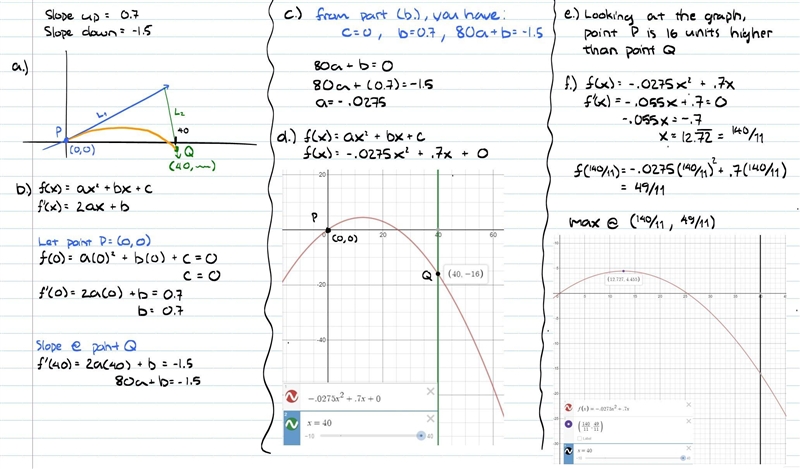 Slope up = 0.7
Slope down = -1.5
a.)
L1
L2
P
(0,0)
40
Q
(40, ~)
b) f(x) = ax² + bx + c
f'(x) = 2ax + b
Let point P = (0,0)
f(0) = a(0)² + b(0) + c = 0
c = 0
f'(0) = 2a(0) + b = 0.7
b = 0.7
Slope @ point Q
f'(40) = 2a(40) + b = -1.5
80a + b = -1.5
c.) from part (b.), you have:
c = 0, b = 0.7, 80a + b = -1.5
80a + b = 0
80a + (0.7) = -1.5
a = -.0275
d.) f(x) = ax² + bx + c
f(x) = -.0275x² + .7x + 0
20
P
(0,0)
20
40
60
Q
(40, -16)
-20
-40
-.0275x² + .7x + 0
x = 40
-10
40
e.) Looking at the graph,
point P is 16 units higher
than point Q
f.) f(x) = -.0275x² + .7x
f'(x) = -.055x + .7 = 0
-.055x = -.7
x = 12.72 = 140/11
f(140/11) = -.0275(140/11)² + .7(140/11)
= 49/11
max @ (140/11, 49/11)
(12.727, 4.455)
f(x) = -.0275x² + .7x
(140/11, 49/11)
Label
x = 40